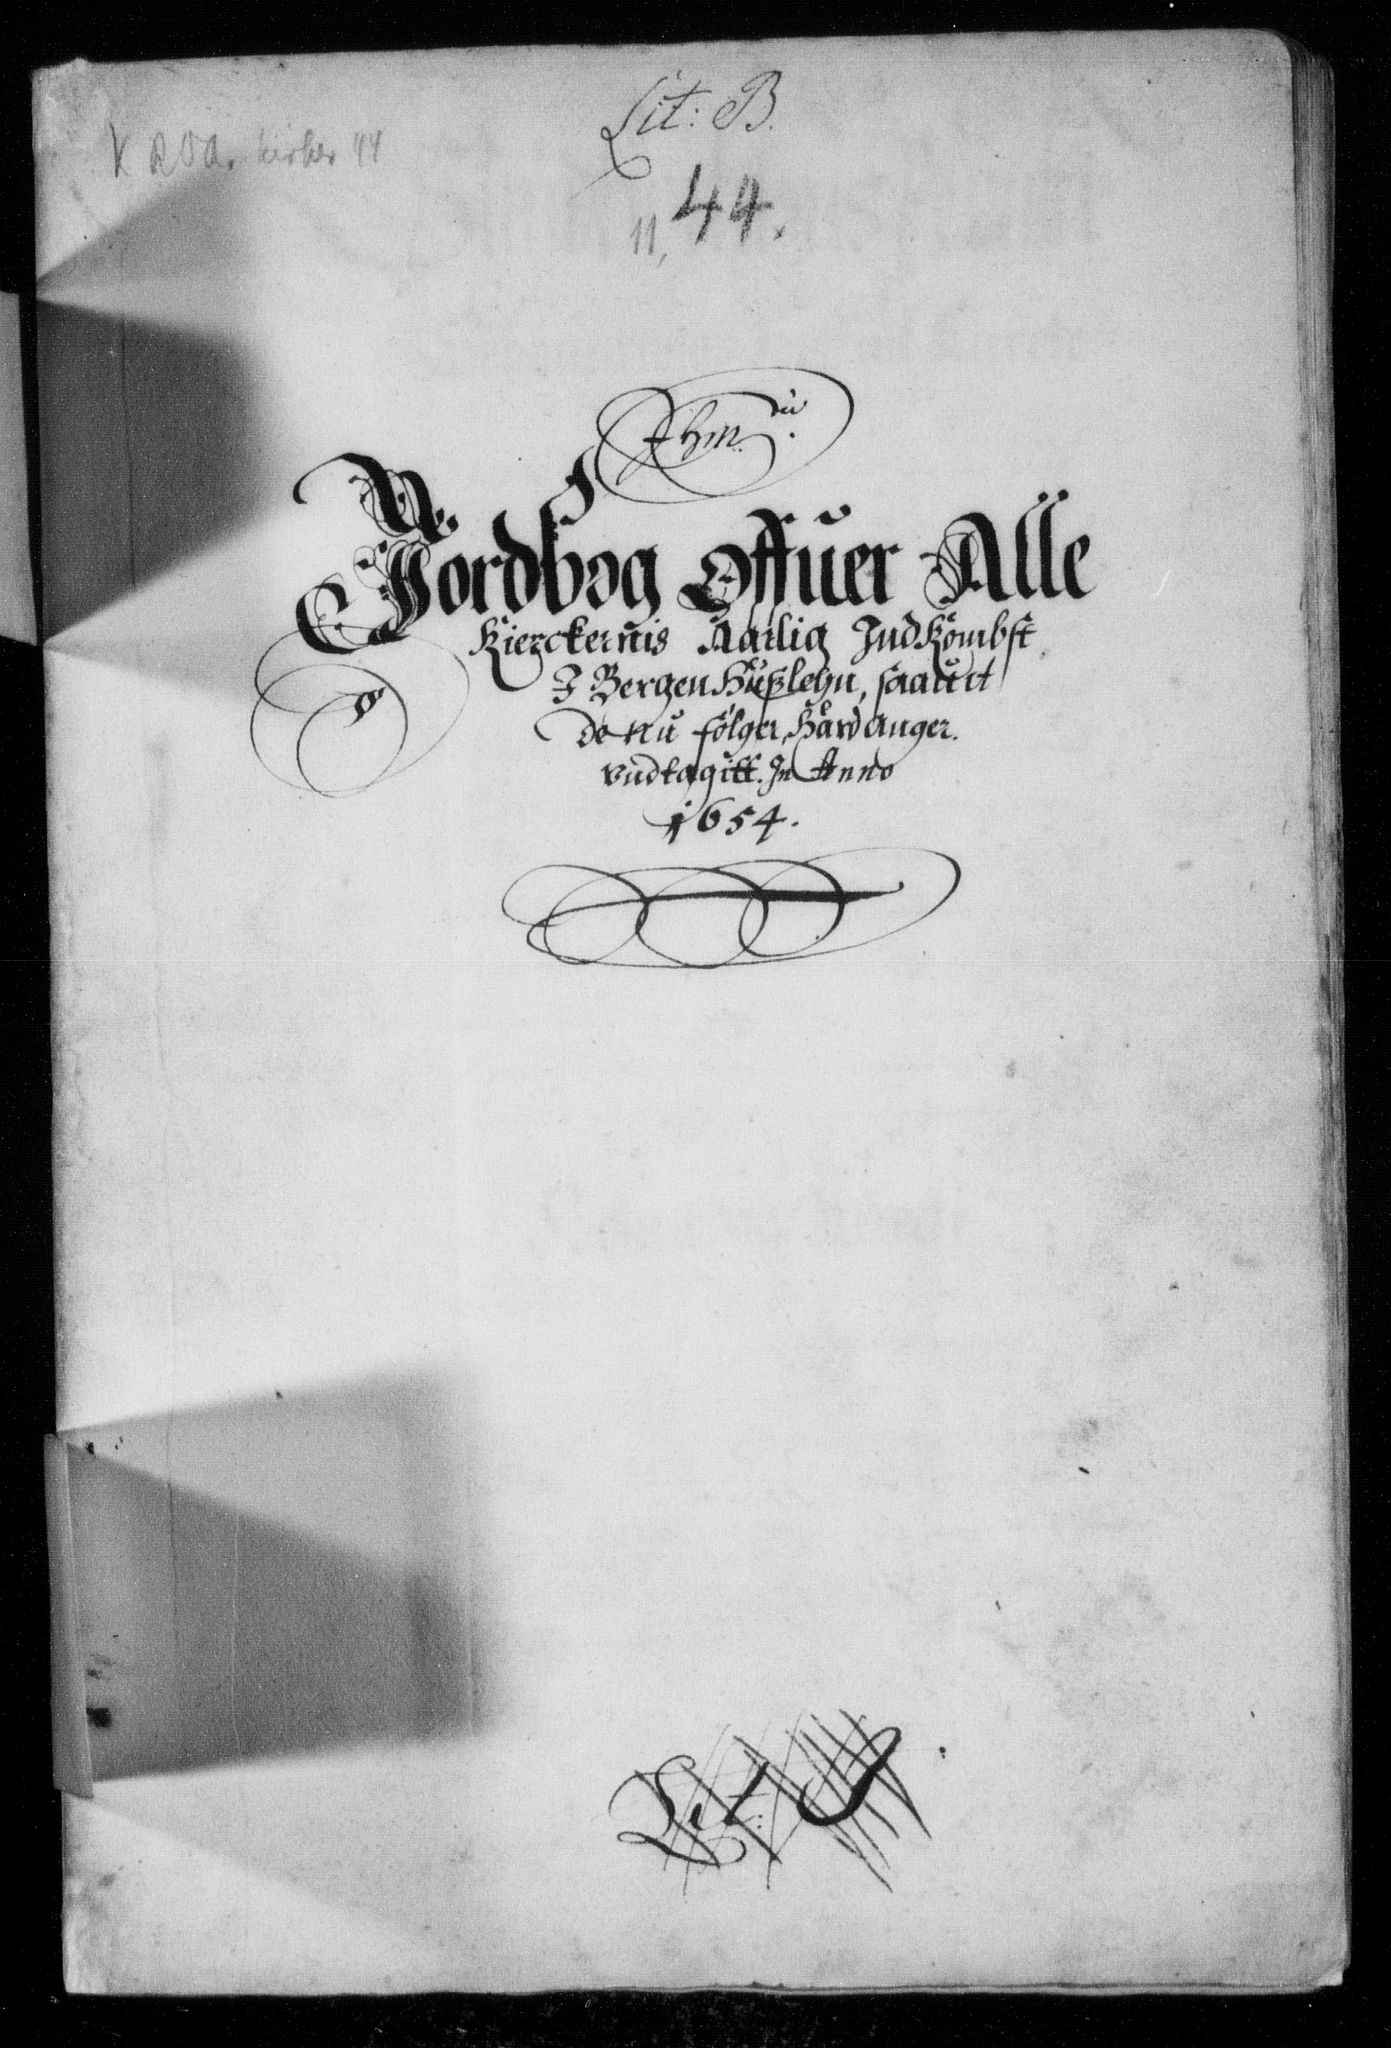 Lit: B.
44
11, 44.
Jordbog Offuer Alle
Kierckernis Aarlig Indkombst
I Bergenhußlehn, saauit
de nu følger, Hardanger.
vndtagitt. In Anno
1654.